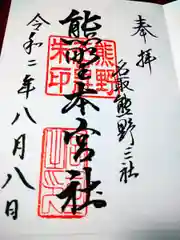 奉拝
名取熊野三社
熊野本宮社
令和二年八月八日